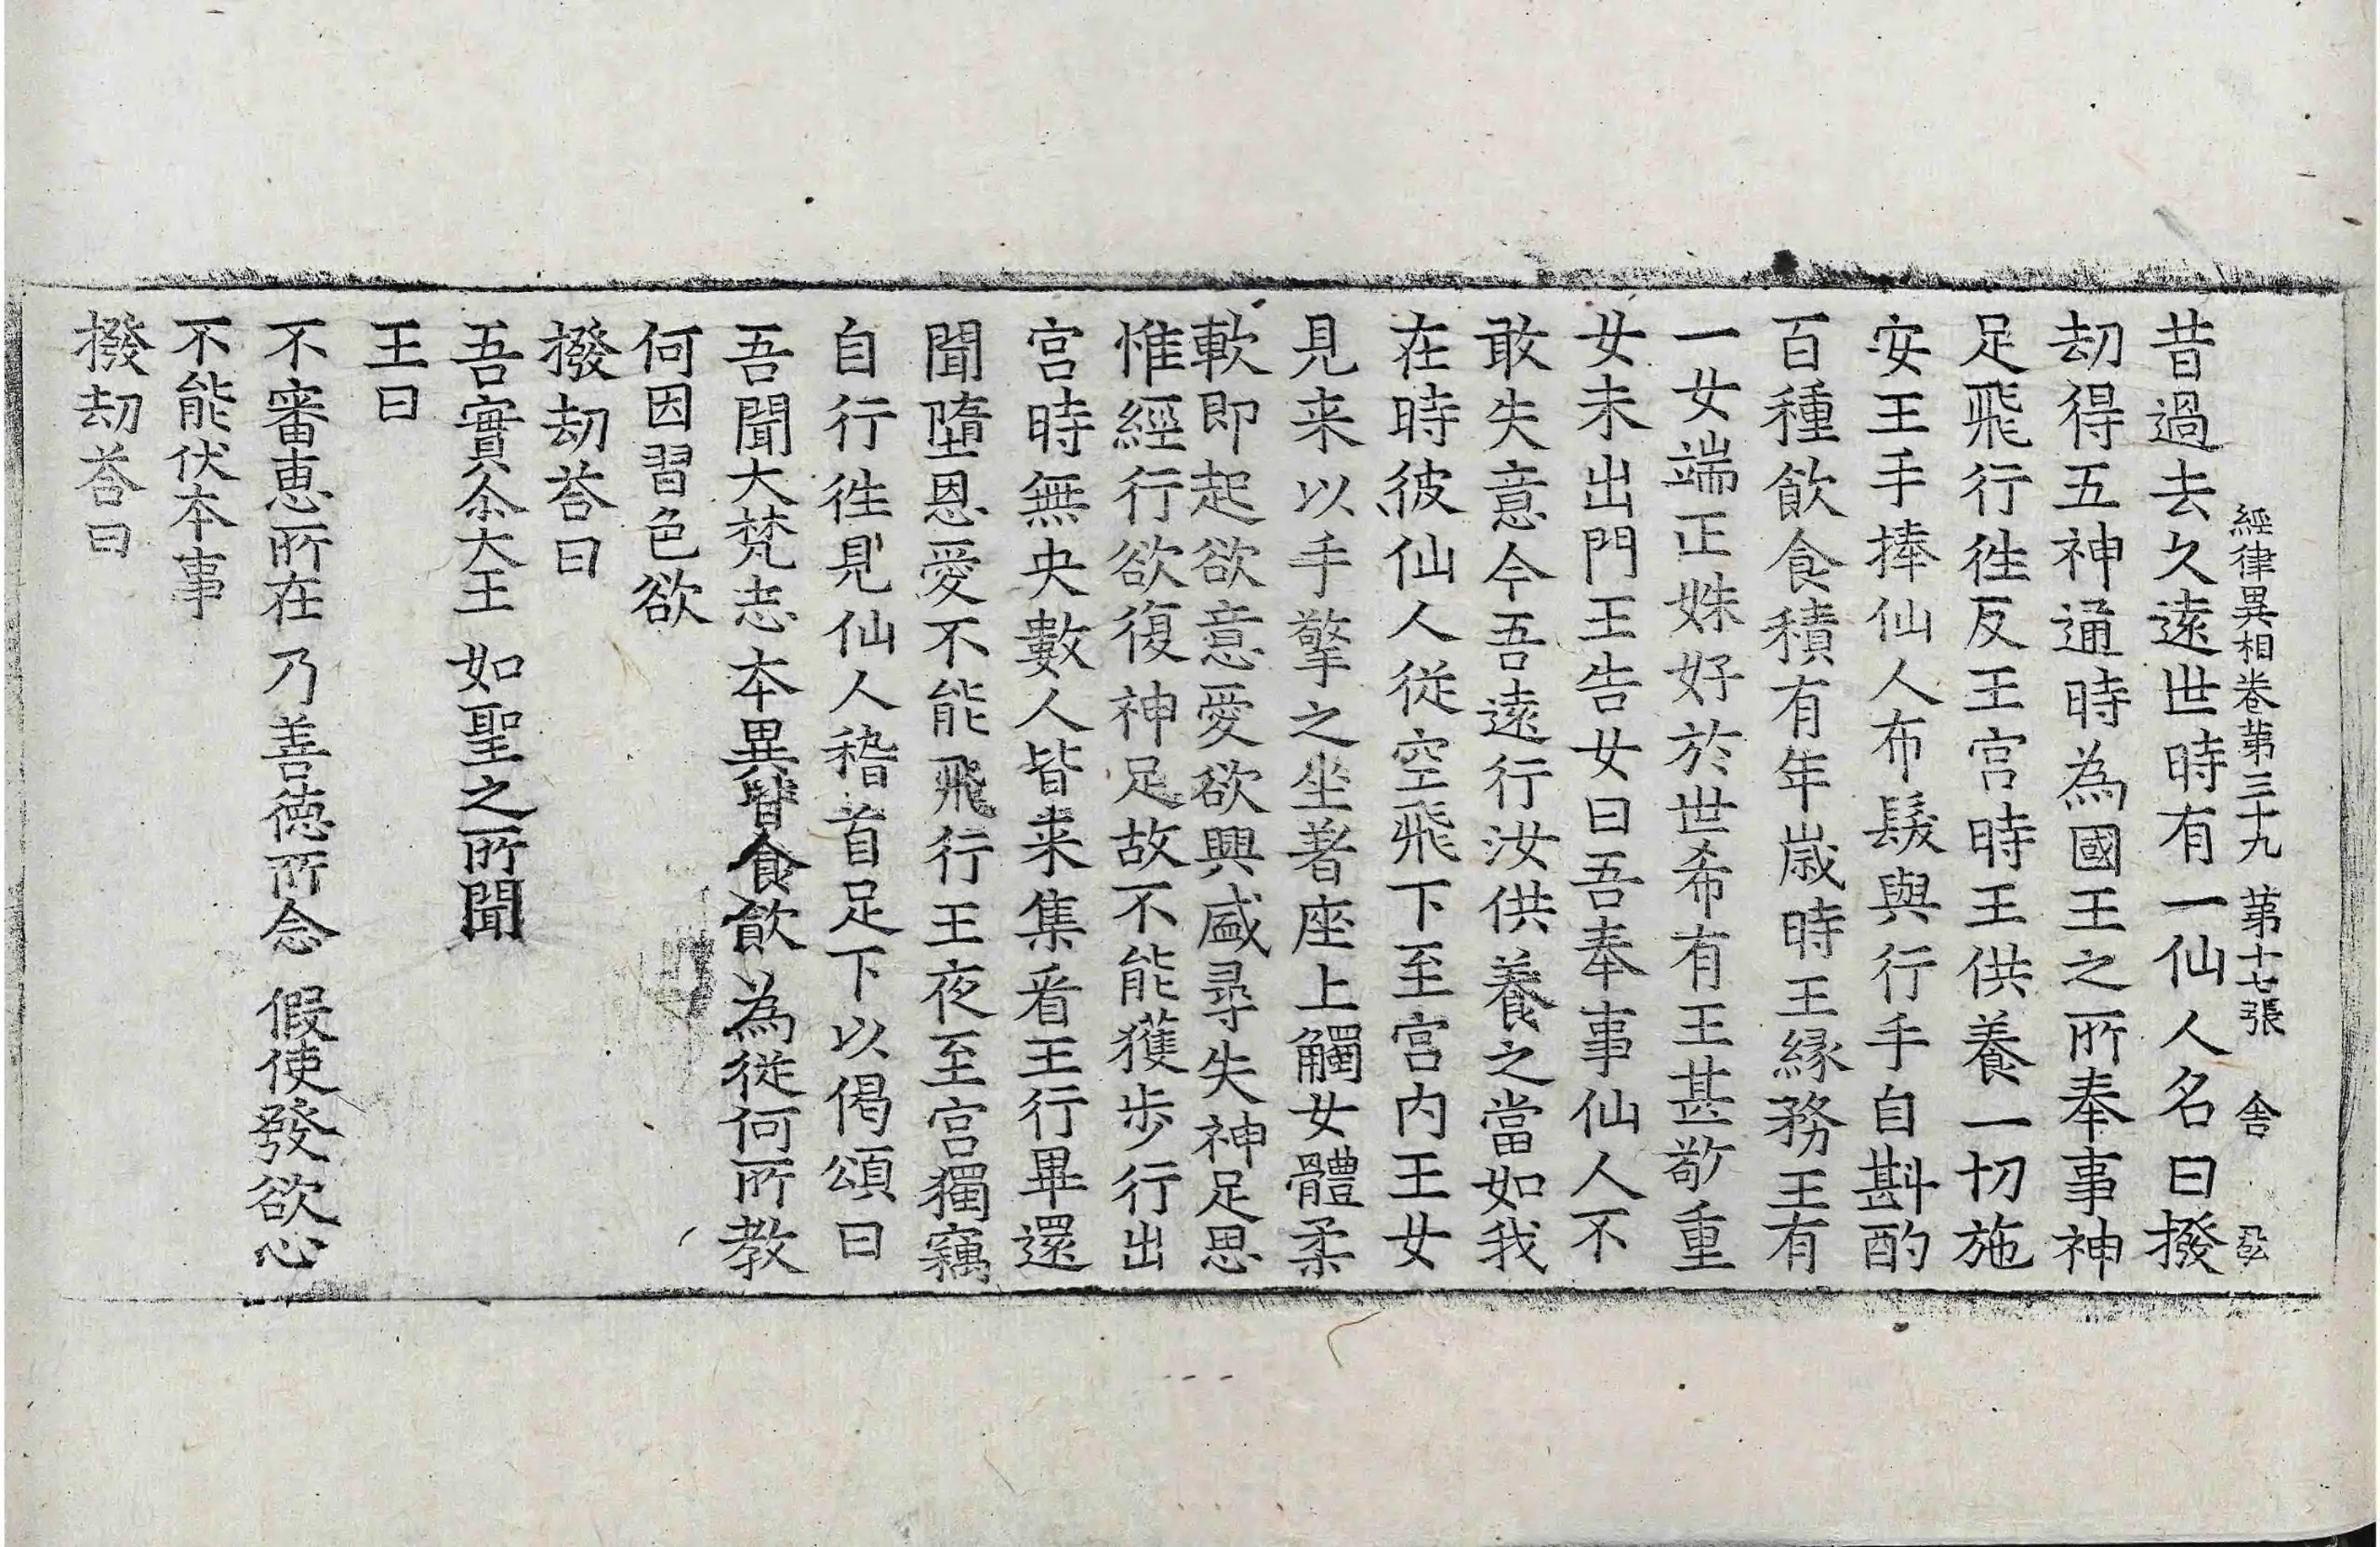 經律異相卷第三十九 第十七張 舍
昔過去久遠世時有一仙人名曰撥
劫得五神通時為國王之所奉事神
足飛行徃反王宮時王供養一切施
安王手捧仙人布髮與行手自斟酌
百種飲食積有年歲時王緣務王有
一女端正姝好於世希有王甚敬重
女未出門王告女曰吾奉事仙人不
敢失意今吾遠行汝供養之當如我
在時彼仙人從空飛下至宮内王女
見来以手擎之坐著座上觸女體柔
軟即起欲意愛欲興盛尋失神足思
惟經行欲復神足故不能獲步行出
宮時無央數人皆来集看王行畢還
聞墮恩愛不能飛行王夜至宮獨竊
自行徃見仙人稽首足下以偈頌曰
吾聞大梵志 本異皆食飲 為從何所教
何因習色欲
撥劫荅曰
吾實尒大王 如聖之所聞
王曰
不審惠所在 乃善德所念 假使發欲心
不能伏本事
撥劫荅曰